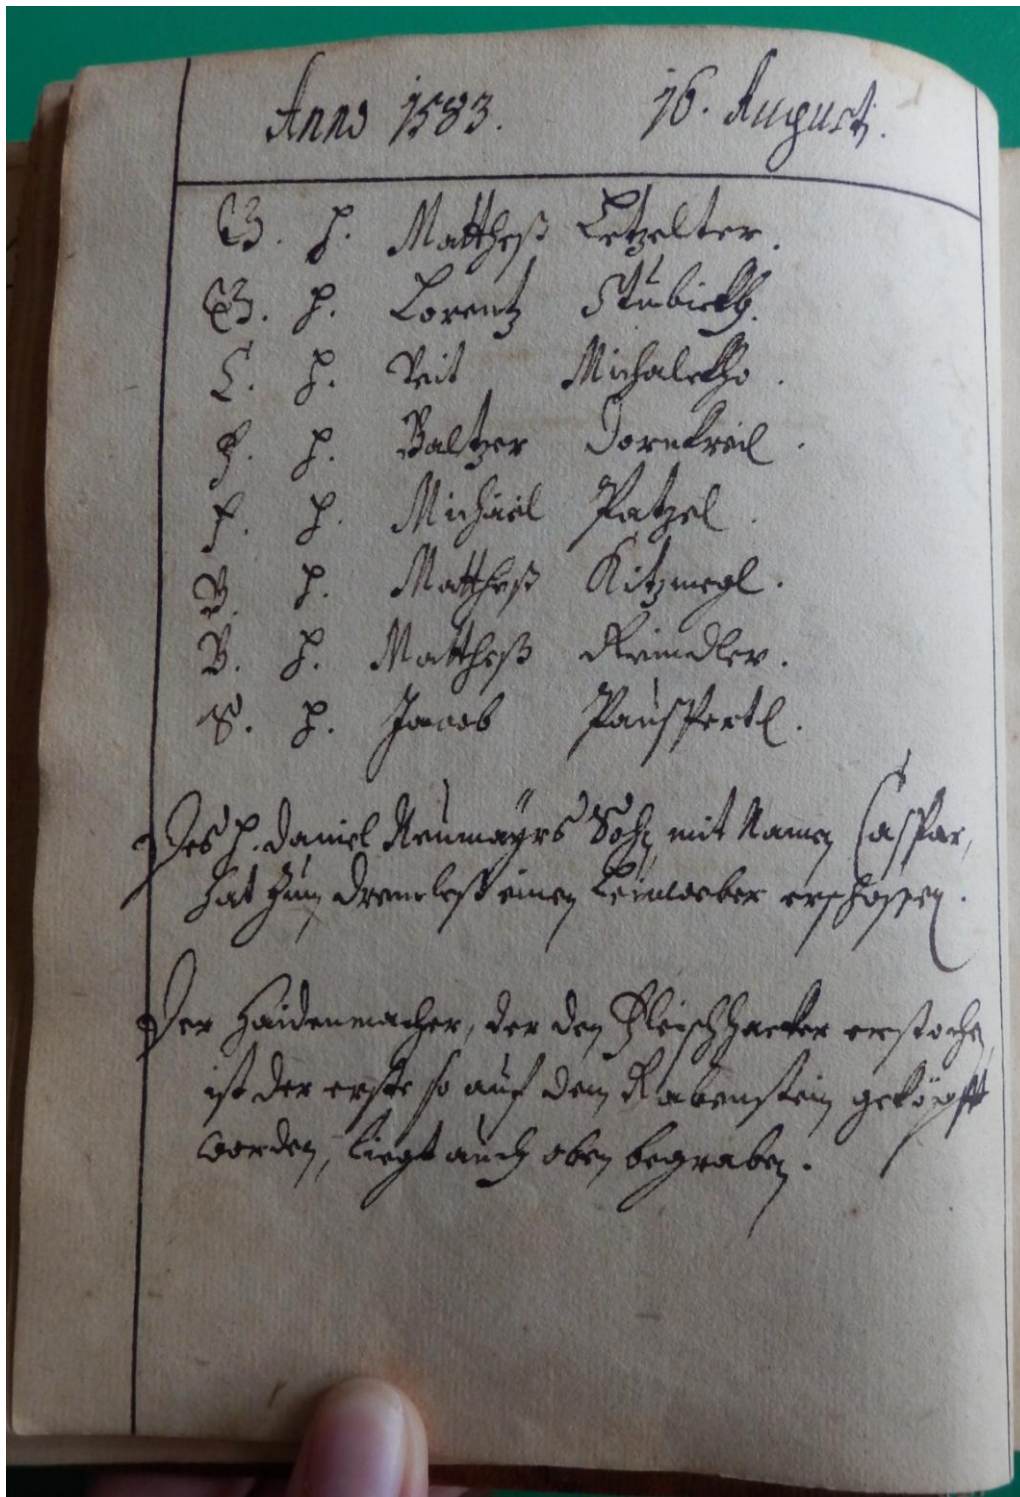 Anno 1583. 16. Augusti.
B. H. Matthes Letzelter.
B. H. Lorentz Stubickh.
C. H. Veit Michalekho.
H. H. Baltzer Dornkreil.
F. H. Michäel Patzel.
B. H. Mattheß Kitzmegl.
B. H. Mattheß Reindler.
S. H. Jacob Pauspertl.
Des H. Daniel Neumayrs Sohn mit Namen Caspar,
hat zum einen Leinweber erschossen.
Der Haidenmacher, der den Fleischhacker erstochen,
ist der erste so auf dem Rabenstein geköpfft
worden, liegt auch oben begraben.